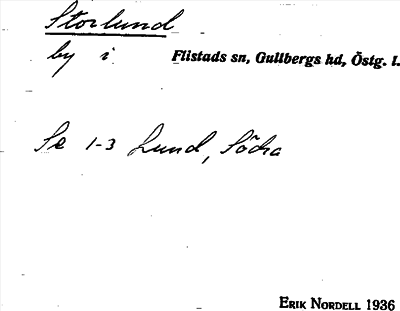 Storlund
by i Flistads sn, Gullbergs hd, Östg. l.
Se 1-3 Lund, Södra
ERIK NORDELL 1936